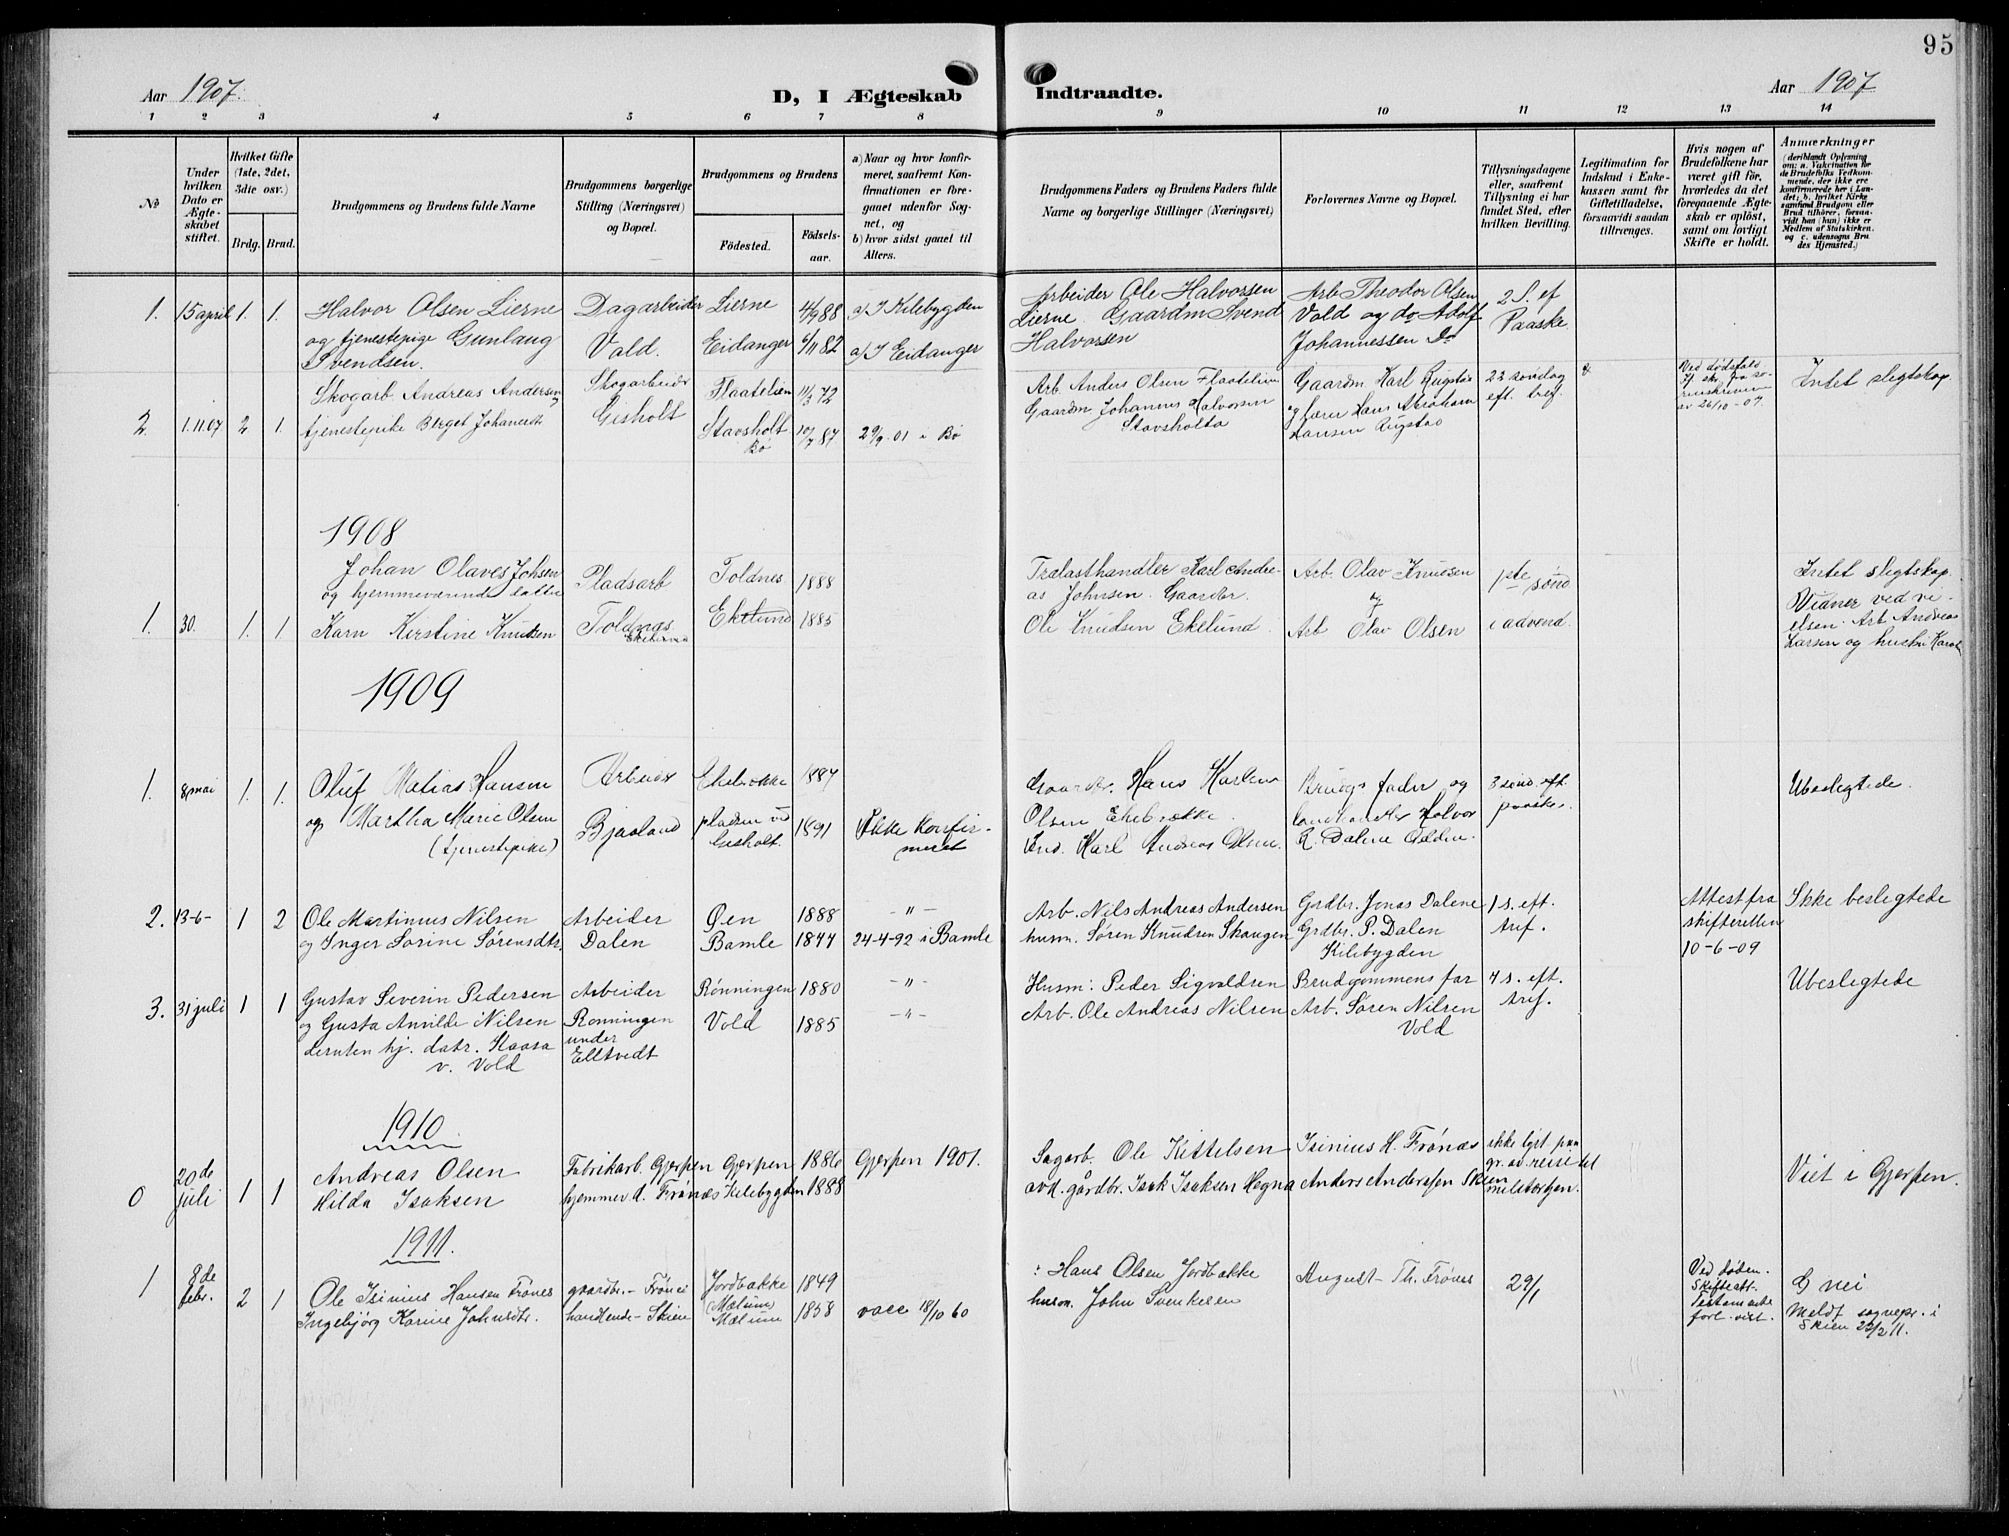 95
Aar 1907.
D, I Ægteskab Indtraadte.
Aar 1907
1 2 3 4 5 6 7 8 9 10 11 12 13 14
No
Under hvilken Dato er Ægteskabet stiftet.
Hvilket Gifte (1ste, 2det, 3die osv.)
Brdg. Brud.
Brudgommens og Brudens fulde Navne
Brudgommens borgerlige Stilling (Næringsvei) og Bopæl.
Brudgommens og Brudens
Födested.
Födselsaar.
a) Naar og hvor konfirmeret, saafremt Konfirmationen er foregaaet udenfor Sognet, og
b) hvor sidst gaaet til Alters.
Brudgommens Faders og Brudens Faders fulde Navne og borgerlige Stillinger (Næringsvei)
Forlovernes Navne og Bopæl.
Tillysningsdagene eller, saafremt Tillysning ei har fundet Sted, efter hvilken Bevilling.
Legitimation for Indskud i Enkekassen samt for Giftetilladelse, forsaavidt saadan tiltrænges.
Hvis nogen af Brudefolkene har været gift för, hvorledes da det foregaaende Ægteskab er oplöst, samt om lovligt Skifte er holdt.
Anmærkninger
(deriblandt Oplysning om: a. Vakcination for de Brudefolks Vedkommende, der ikke ere konfirmerede her i Landet; b. hvilket Kirkesamfund Brudgom eller Brud tilhörer, forsaavidt han (hun) ikke er Medlem af Statskirken, og c. udensogns Brudes Hjemsted.)
1. 15 april 1. 1. Halvor Olsen Lierne Dagarbeider Lierne 4/9 88 a/ I Kilebygden Arbeider Ole Halvorsen Arb. Theodor Olsen 2 S. ef
og tjenestepige Gunlaug Vald. Eidanger 6/11 82 a/ I Eidanger Lierne. Gaardm Svend Vold og do Adolf Paaske
Svendsen. Halvorsen Johannessen do
Skogarb Andreas Andersen Skogarbeider Flaatelien 11/3 72 Arb. Anders Olsen Flaatelien Gaardm Karl Rugstad 23 søndag Ved dødsfald Intet slegtskap
2. 1.11.07 2 1. og tjenestepike Berget Johannesdt Gisholt Stavsholt 10/7 87 29/9-01 i Bø Gaardm Johannes Halvorsen og lærer Hans Abraham eft. tref. av 26/10-07.
Bø Stavsholta Hansen Rugstad
1908
Johan Olaves Johsen Pladsarb Toldnes 1888 Trælasthandler Karl Andre- Arb. Olav Knudsen 1ste sønd Intet slegtskap.
og hjemmeværende datter as Johnsen. Gaardbr. og Vidner ved vi-
1. 30. 1. 1 Karn Kirstine Knudsen Toldnes Ekelund 1885 Ole Knudsen Ekelund. Arb Olav Olsen i advend. elsen. Arb Andreas
Ekelund Larsen og hustru
1909
1. 8 mai 1. 1. Oluf Matias Hansen Arbeider Ekebække 1887 Gaardbr. Hans Karlem Brudgs fader og 3 sønd. eft. Ubeslegtede.
og Martha Marie Olsen Bjaaland pladsen vd 1891 Ikke konfir- Olsen Ekebække. landhandler Halvor paaske.
(tjenestepike) Gisholt. meret Ind. Karl Andreas Olsen. R. Dalene
2. 13-6- 1 2 Ole Martinius Nilsen Arbeider Øen 1888 -"- Arb. Nils Andreas Andersen Grdbr. Jonas Dalene 1 s. eft. Attest fra Ikke beslegtede
og Inger Sorine Sørensdtr. Dalen Bamle 1877 24-4-92 i Bamle husm. Søren Knudsen Skaugen Grdbr. P. Dalen tref. skifteretten
Kilebygden 10-6-09
3. 31 juli 1 1 Gustav Severin Pedersen Arbeider Rönningen 1880 -"- Husm: Peder Sigvaldsen Brudgommens far 7 s. eft. Ubeslegtede
og Gusta Anvilde Nilsen Ronningen Vold 1885 -"- Arb. Ole Andreas Nilsen Arb. Sören Nilsen tref.
hj. datr. Haasa under Vold
v. Vold Elltvedt
1910
20de Andreas Olsen Fabrikarb. Gjerpen Gjerpen 1886 Gjerpen 1901. Sagarb. Ole Kittelsen Isinius H. Frönæs ikke lyst paa Viet i Gjerpen.
0 juli 1 1 Hilda Isaksen hjemmev d. Frönæs Kilebygden 1888 avd. gårdbr. Isak Isaksen Hegna Anders Anderssen Skien gr. av reise til
militærtjen.
1911.
1 8de febr. 2 1 Ole Isinius Hansen Frönes gaardbr. - Frönes Jordbakke 1849 : Hans Olsen Jordbakke August Th. Frönes 29/1 Ved døden. G nei
Ingebjörg Karine Johnsdtr. handlende - Skien Mælum 1858 vacc 18/10 60 husm. John Svenkesen Skifteatt. Meldt sognepr. i
Mælum Testamente Skien 22/2 11.